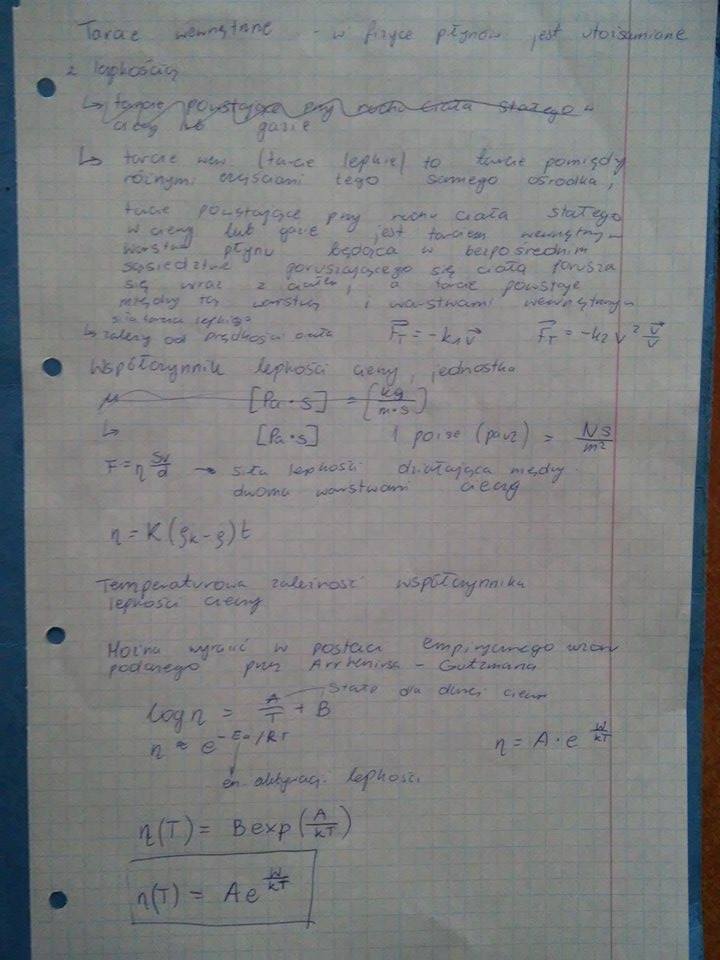 Tarcie wewnętrzne - w fizyce płynów jest utożsamiane
z lepkością
↳ tarcie powstające przy ruchu ciała stałego w
cieczy lub gazie
↳ tarcie wew. (tarcie lepkie) to tarcie pomiędzy
różnymi częściami tego samego ośrodka,
tarcie powstające przy ruchu ciała stałego
w cieczy lub gazie jest tarciem wewnętrzn
warstwa płynu będąca w bezpośrednim
sąsiedztwie poruszającego się ciała porusza
się wraz z ciałem, a tarcie powstaje
między tą warstwą i warstwami wewnętrznym
siła tarcia lepkiego
↳ zależy od prędkości ciała F⃗_T = -k₁v⃗ F⃗_T = -k₂v² v⃗/v
Współczynnik lepkości cieczy, jednostka
μ [Pa·s] = [kg/m·s]
↳ [Pa·s] 1 poise (pauz) = NS/m²
F = η Sv/d → siła lepkości działająca między
dwoma warstwami cieczy
η = K(ρₖ-ρ)t
Temperaturowa zależność współczynnika
lepkości cieczy
Można wyrazić w postaci empirycznego wzoru
podanego przez Arrheniusa - Gutzmana
stałe dla danej cieczy
log η = A/T + B
η ≈ e^(-Ea/RT) η = A·e^(W/kT)
en. aktywacji lepkości
η(T) = B exp(A/kT)
η(T) = A e^(W/kT)